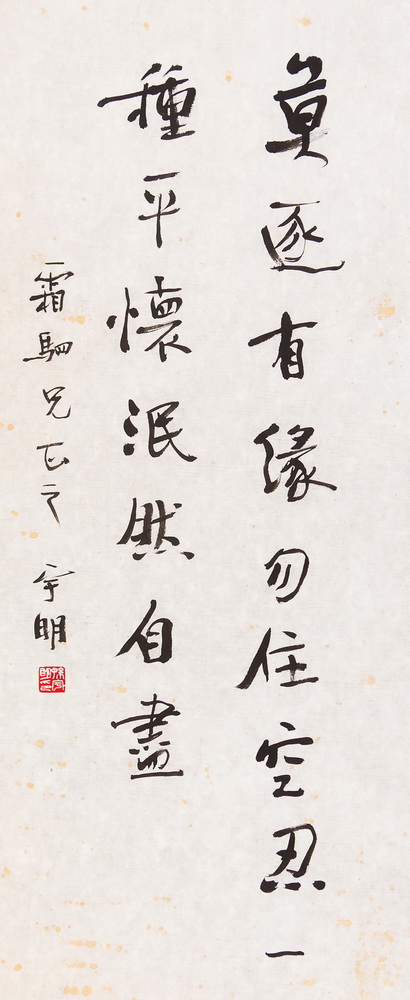 莫逐有緣勿住空忍一
種平懷泯然自盡
霜駟兄正之 宇明